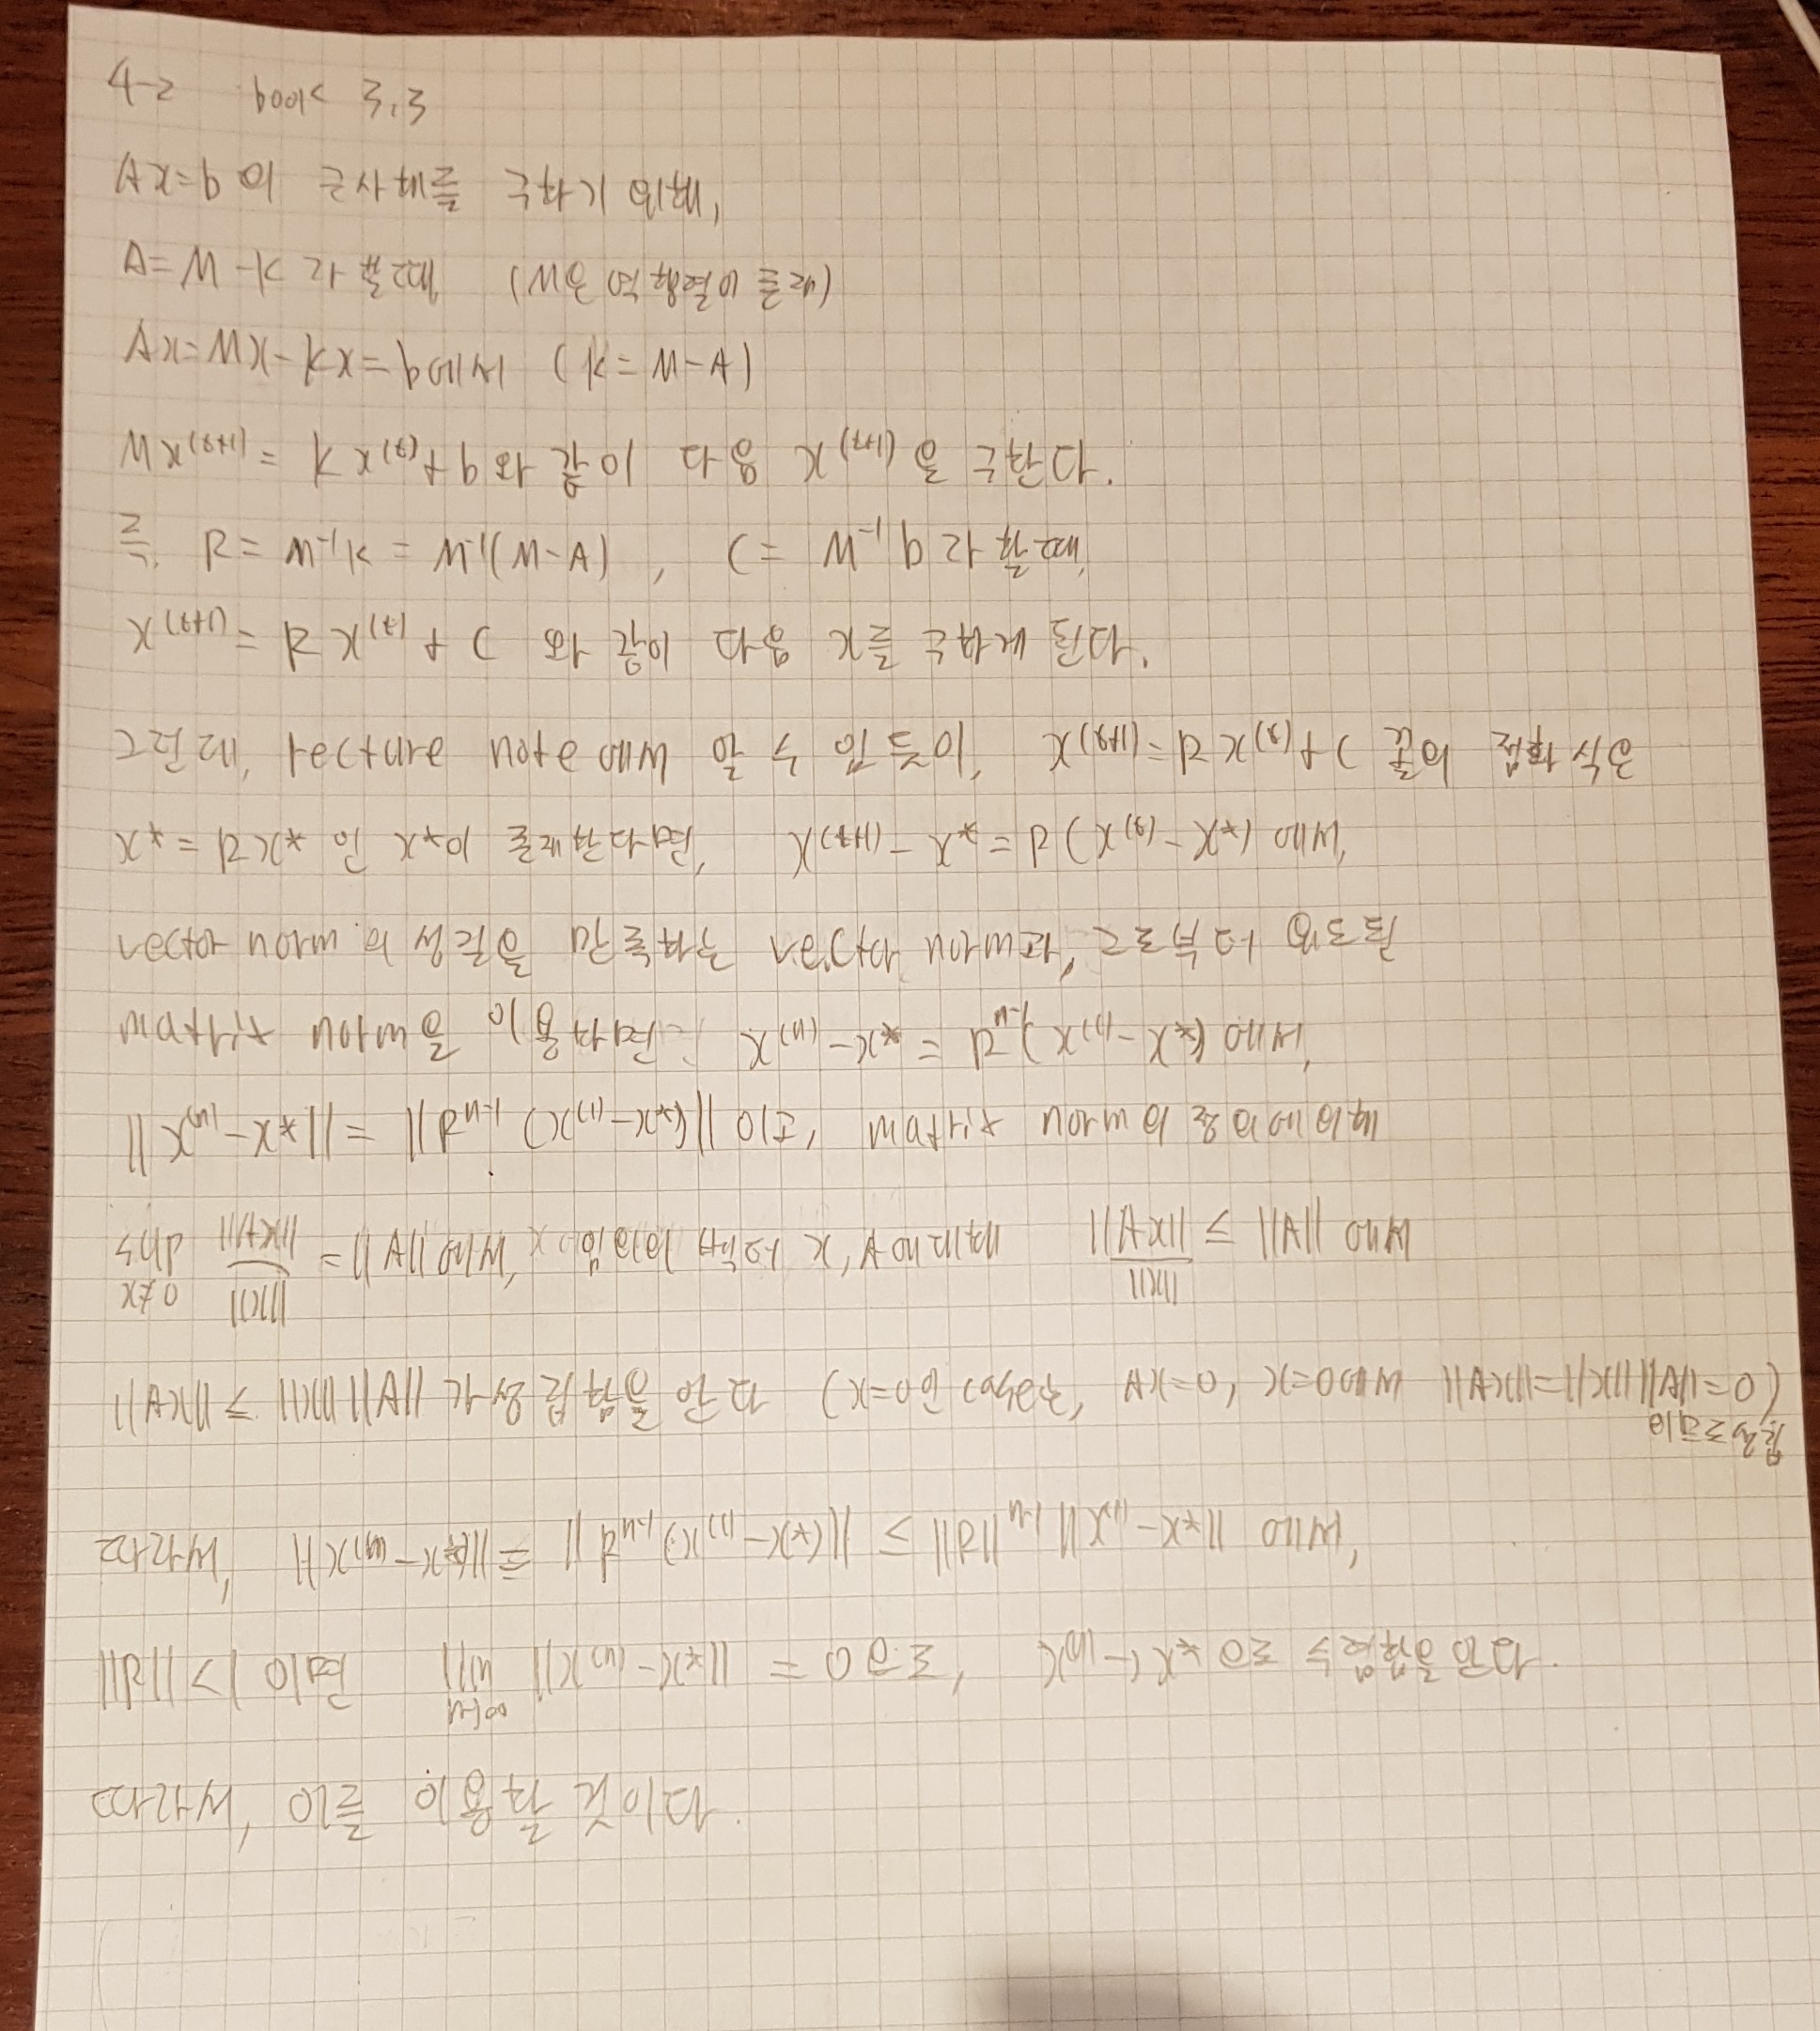 4-2 book 3.3
Ax=b 의 근사해를 구하기 위해,
A=M-K 라 할때 (M은 역행렬이 존재)
Ax=Mx-Kx=b에서 (K=M-A)
Mx^(k+1) = Kx^(k)+b 와 같이 다음 x^(k+1) 을 구한다.
즉, R = M^-1K = M^-1(M-A), C = M^-1b 라 할때,
x^(k+1) = Rx^(k) + C 와 같이 다음 x를 구하게 된다.
그런데, lecture note에서 알 수 있듯이, x^(k+1)=Rx^(k)+C 꼴의 점화식은
x*=Rx* 인 x*이 존재한다면, x^(k+1)-x* = R(x^(k)-x*) 에서,
vector norm의 성질을 만족하는 vector norm과, 그로부터 유도된
matrix norm을 이용하면 x^(n)-x* = R^n-1(x^(1)-x*)에서,
||x^(n)-x*|| = ||R^n-1(x^(1)-x*)||이고, matrix norm의 정의에 의해
sup x≠0 ||Ax||/||x|| = ||A||에서, 임의의 x, A에 대해 ||Ax||/||x|| ≤ ||A||에서
||Ax|| ≤ ||x|| ||A||가 성립함을 안다 (x=0인 case는, Ax=0, x=0에서 ||Ax||=||x||||A||=0)
이므로 성립
따라서, ||x^(n)-x*|| = ||R^n-1(x^(1)-x*)|| ≤ ||R||^n-1||x^(1)-x*||에서,
||R||<1 이면 lim n→∞ ||x^(n)-x*|| = 0 으로, x^(n)→x* 으로 수렴함을 안다.
따라서, 이를 이용할 것이다.